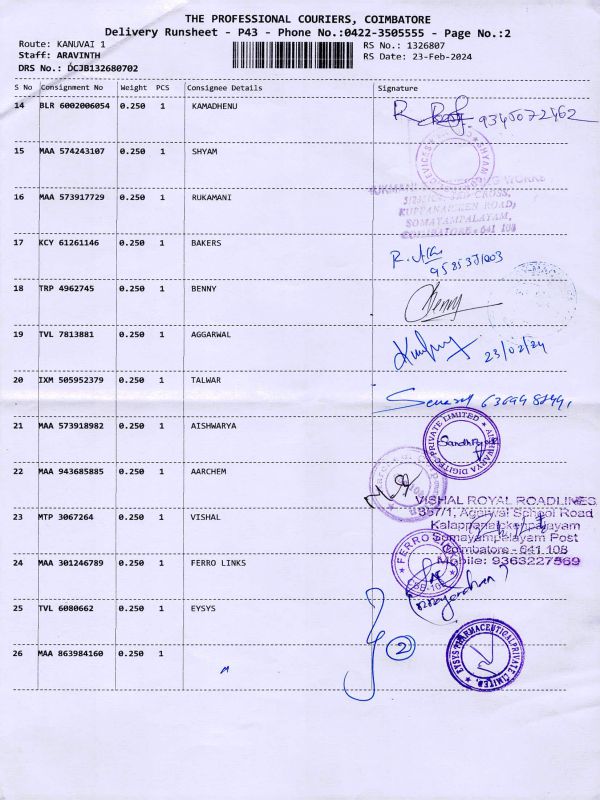 THE PROFESSIONAL COURIERS, COIMBATORE
Delivery Runsheet - P43 - Phone No.:0422-3505555 - Page No.:2
Route: KANUVAI 1
RS No.: 1326807
Staff: ARAVINTH
RS Date: 23-Feb-2024
DRS No.: DCJB132680702
S No Consignment No Weight PCS Consignee Details Signature
14 BLR 6002006054 0.250 1 KAMADHENU
9345072462
15 MAA 574243107 0.250 1 SHYAM
SHYAM
16 MAA 573917729 0.250 1 RUKAMANI
KUPPANAICKEN ROAD,
SOMAYAMPALAYAM,
COIMBATORE - 641 108
17 KCY 61261146 0.250 1 BAKERS
18 TRP 4962745 0.250 1 BENNY
Benny
19 TVL 7813881 0.250 1 AGGARWAL
23/02/24
20 IXM 505952379 0.250 1 TALWAR
21 MAA 573918982 0.250 1 AISHWARYA
AISHWARYA DIGITEC PRIVATE LIMITED
22 MAA 943685885 0.250 1 AARCHEM
23 MTP 3067264 0.250 1 VISHAL
VISHAL ROYAL ROADLINES
357/1, Agarwal School Road
Kalappanaickenpalayam
Somayampalayam Post
Coimbatore - 641 108
Mobile: 9363227569
24 MAA 301246789 0.250 1 FERRO LINKS
FERRO
CBE-108
25 TVL 6080662 0.250 1 EYSYS
2
EYSYS PHARMACEUTICAL PRIVATE LIMITED
26 MAA 863984160 0.250 1